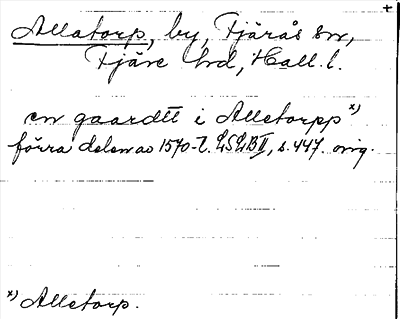 +
Allatorp, by, Fjärås sn,
Fjäre hd, Hall. l.
en gaardtt i Alletorpp x)
förra delen av 1570-t. LSLB II, s. 447. orig.
x) Alletorp.